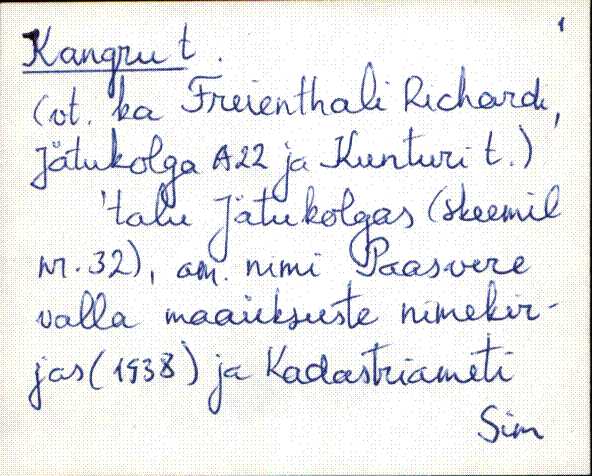 1
Kangru t.
(vt. ka Freienthali Richardi,
Jätukolga A22 ja Kunturi t.)
'talu Jätukolgas (skeemil
nr. 32), am. nimi Paasvere
valla maaüksuste nimekir-
jas (1938) ja Kadastriameti
Sim